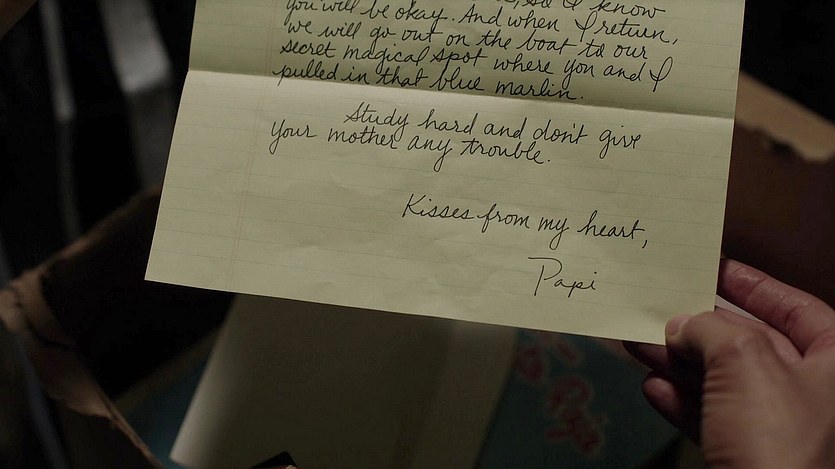 so I know
you will be okay. And when I return,
we will go out on the boat to our
secret magical spot where you and I
pulled in that blue marlin.
Study hard and don't give
your mother any trouble.
Kisses from my heart,
Papi